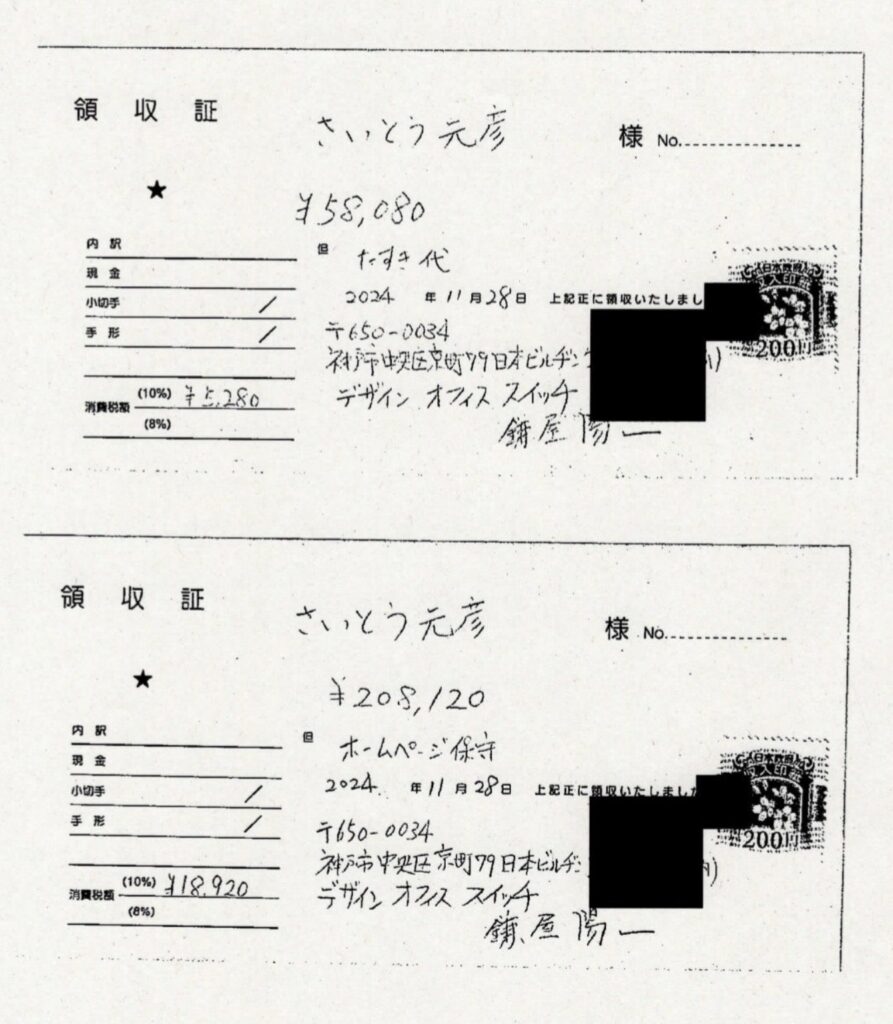 領収証
さいとう元彦 様 No.
★
¥58,080
内訳
但 たすき代
現金
2024年11月28日 上記正に領収いたしまし
小切手 /
手形 /
〒650-0034
神戸市中央区京町79日本ビルヂ
デザイン オフィス スイッチ
陽一
消費税額 (10%) ¥5,280
(8%)
日本政府
収入印紙
200円
領収証
さいとう元彦 様 No.
★
¥208,120
内訳
但 ホームページ保守
現金
2024.年11月28日 上記正に領収いたしまし
小切手 /
手形 /
〒650-0034
神戸市中央区京町79日本ビルヂ
デザイン オフィス スイッチ
陽一
消費税額 (10%) ¥18,920
(8%)
日本政府
収入印紙
200円